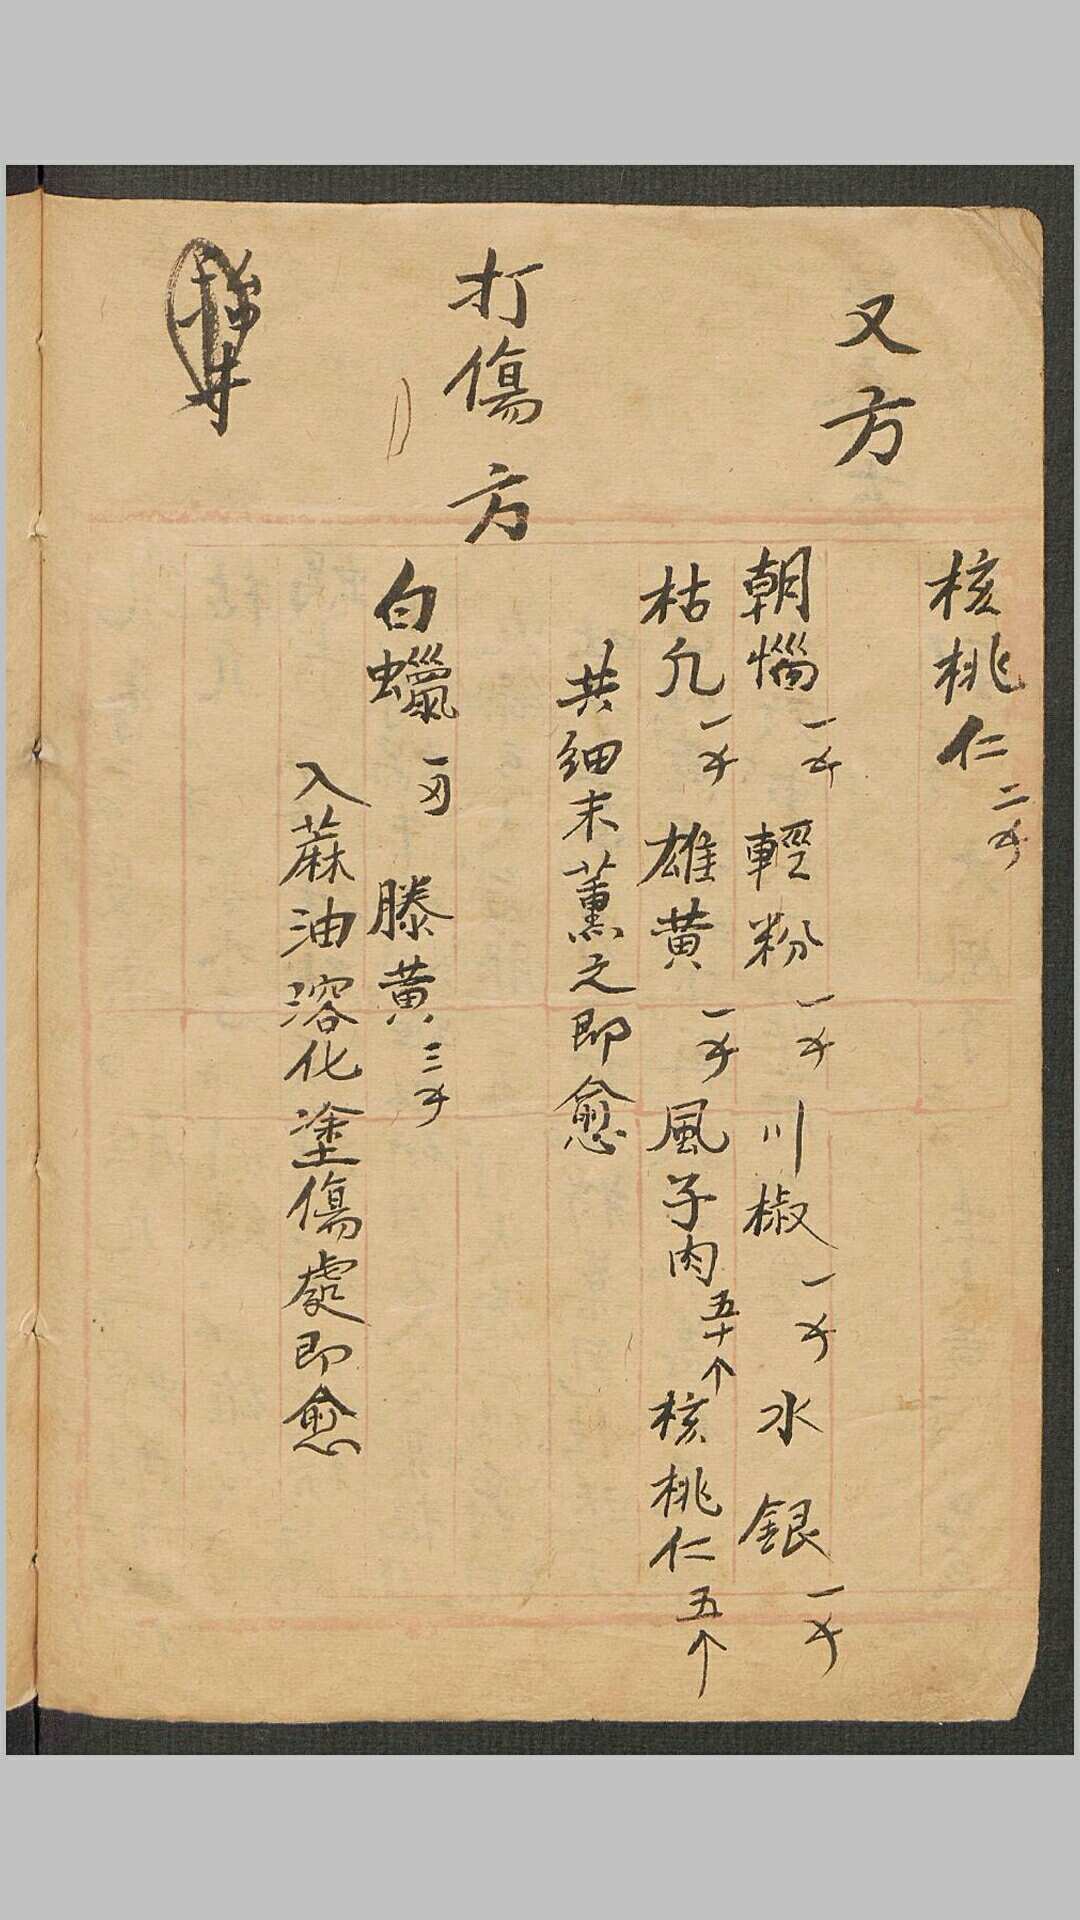 核桃仁二㐅
又方
朝惱一㐅 輕粉一㐅 川椒一㐅 水銀一㐅
枯凣一㐅 雄黄一㐅 風子肉五十个 核桃仁五个
共细末薫之即愈
打傷方
白蠟一 滕黄三㐅
入蔴油溶化塗傷處即愈